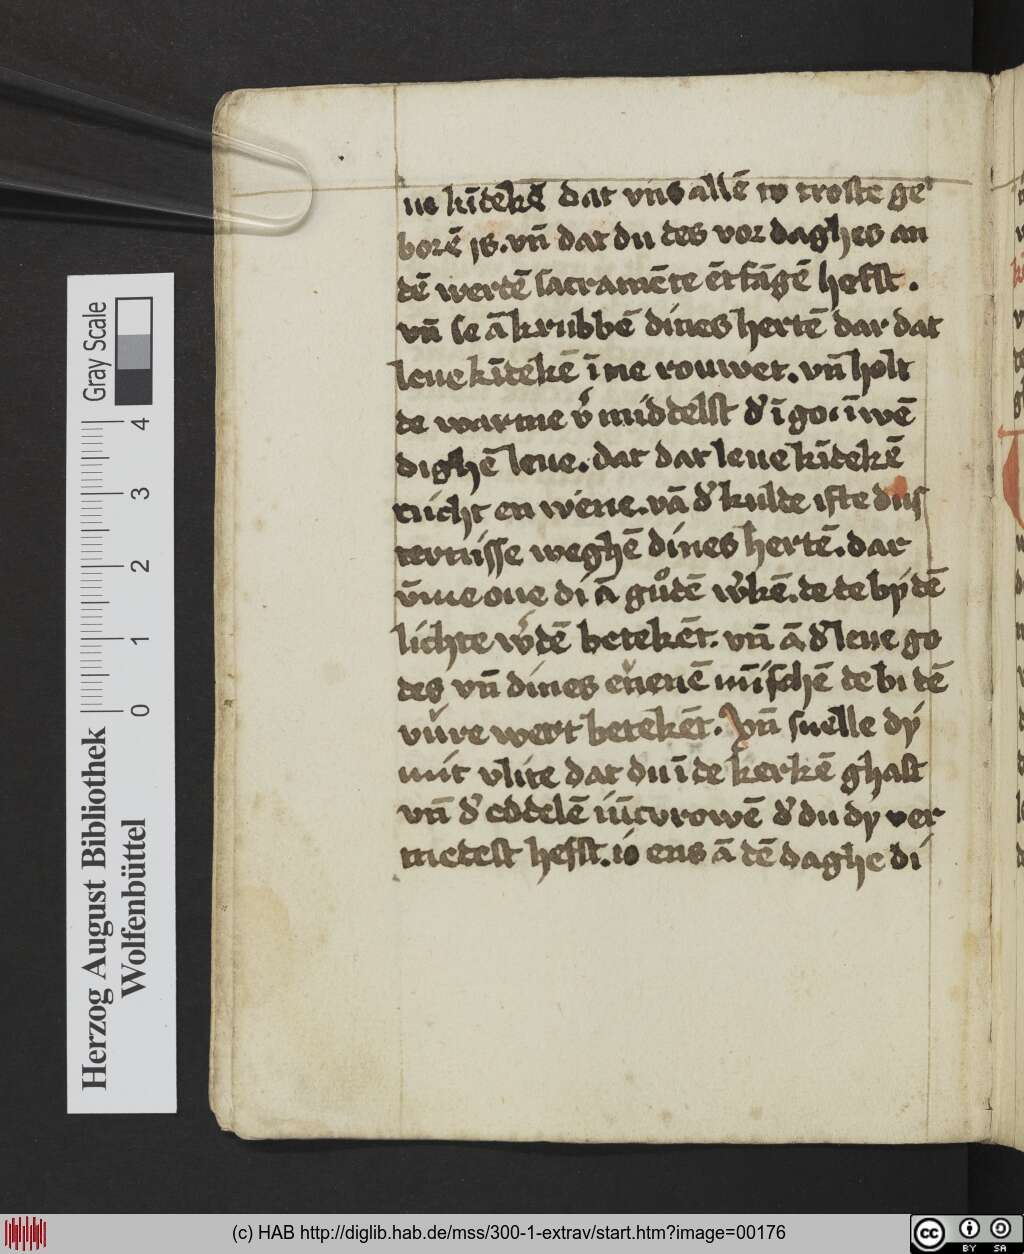 ue kīdekē dat vns allē to troste ge
borē js. vn̄ dat du des vor daghes an
dē werdē sacramēte ētfāgē heffst.
vn̄ se ā krubbē dines hertē dar dat
leue kīdekē īne rouwet. vn̄ holt
de warme v̾middelst d̾ īgo. īwē
dighē leue. dat dat leue kīdekē
nicht en wene. vā d̾ kulde ifte dus
ternisse weghē dines hertē. dar
v̄me oue di ā gůdē w̾kē. de de by dē
lichte w̾dē betekēt. vn̄ ā d̾ leue go
des vn̄ dines euenē mīschē de bi dē
vure wert betekēt. vn̄ snelle dy
mit vlite dat du ī de kerkē ghast
vn̄ d̾ eddelē iūcvrowē d̾ du dy ver
medest heffst. io ens ā dē daghe di
Herzog August Bibliothek
Wolfenbüttel
Gray Scale
0 1 2 3 4
(c) HAB http://diglib.hab.de/mss/300-1-extrav/start.htm?image=00176
cc BY SA